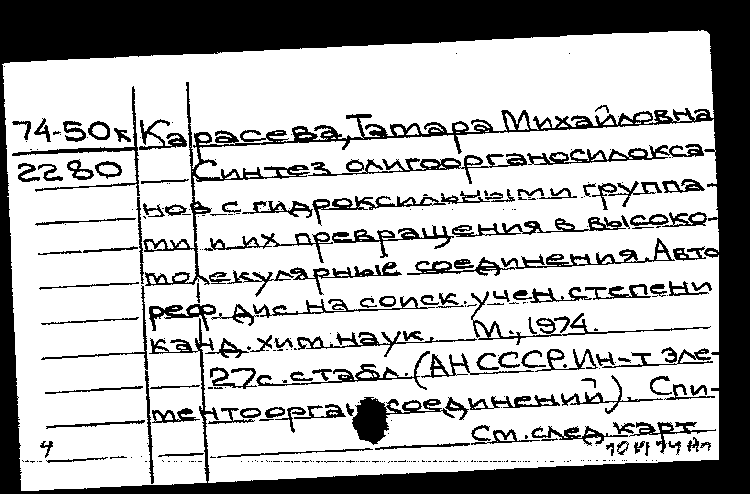 74-50к Карасева, Татара Михайловна
2280 Синтез олигоорганосилокса-
нов с гидроксильными группа-
ми и их превращения в высоко-
молекулярные соединения. Авто
реф. дис. на соиск. учен. степени
канд. хим. наук. М., 1974.
27с. с табл. (АН СССР. Ин-т эле-
ментоорган соединений). Спи-
См. след. карт.
4